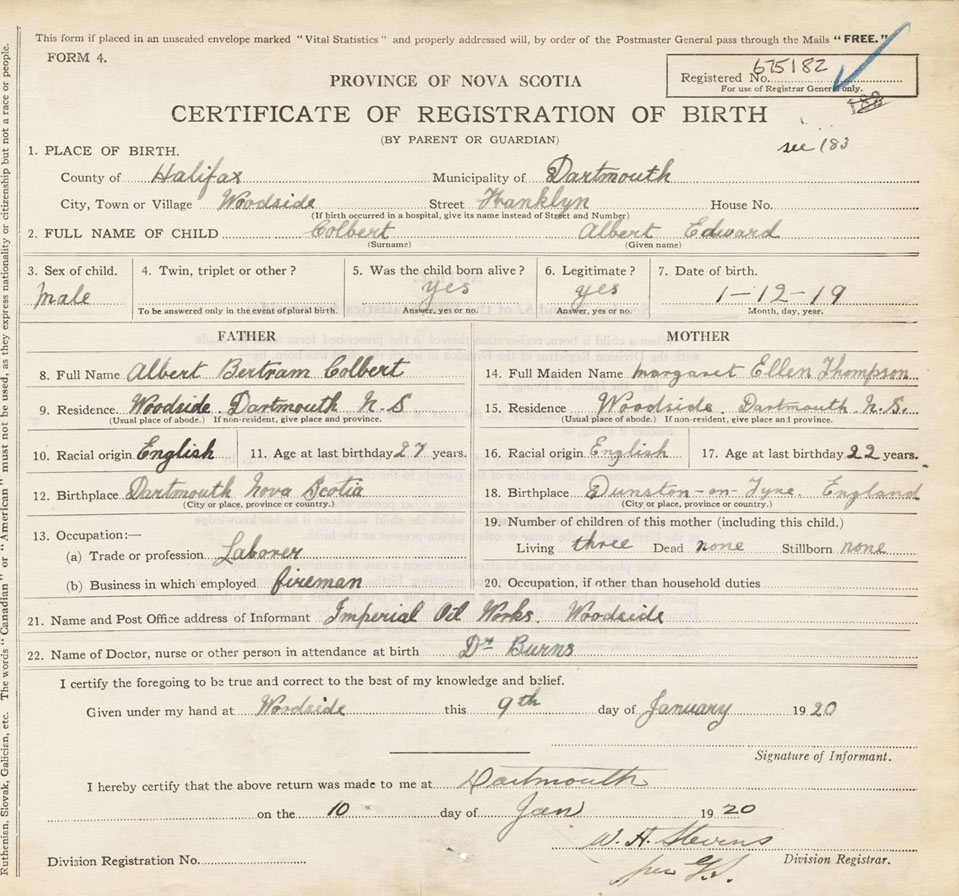 This form if placed in an unsealed envelope marked "Vital Statistics" and properly addressed will, by order of the Postmaster General pass through the Mails "FREE."
FORM 4.
Registered No. 675182
For use of Registrar General only.
PROVINCE OF NOVA SCOTIA
CERTIFICATE OF REGISTRATION OF BIRTH
(BY PARENT OR GUARDIAN)
see 183
1. PLACE OF BIRTH.
County of Halifax Municipality of Dartmouth
City, Town or Village Woodside Street Franklyn House No.
(If birth occurred in a hospital, give its name instead of Street and Number)
2. FULL NAME OF CHILD Colbert Albert Edward
(Surname) (Given name)
3. Sex of child. 4. Twin, triplet or other? 5. Was the child born alive? 6. Legitimate? 7. Date of birth.
male yes yes 1-12-19
To be answered only in the event of plural birth. Answer, yes or no. Answer, yes or no. Month, day, year.
FATHER MOTHER
8. Full Name Albert Bertram Colbert 14. Full Maiden Name Margaret Ellen Thompson
9. Residence Woodside Dartmouth N.S 15. Residence Woodside. Dartmouth N.S.
(Usual place of abode.) If non-resident, give place and province. (Usual place of abode.) If non-resident, give place and province.
10. Racial origin English 11. Age at last birthday 27 years. 16. Racial origin English 17. Age at last birthday 22 years.
12. Birthplace Dartmouth Nova Scotia 18. Birthplace Dunston-on-Tyne. England
(City or place, province or country.) (City or place, province or country.)
13. Occupation:— 19. Number of children of this mother (including this child.)
(a) Trade or profession Laborer Living three Dead none Stillborn none
(b) Business in which employed fireman 20. Occupation, if other than household duties
21. Name and Post Office address of Informant Imperial Oil Works. Woodside
22. Name of Doctor, nurse or other person in attendance at birth Dr Burns
I certify the foregoing to be true and correct to the best of my knowledge and belief.
Given under my hand at Woodside this 9th day of January 1920
Signature of Informant.
I hereby certify that the above return was made to me at Dartmouth
on the 10 day of Jan 1920
W. H. Stevens
Division Registration No. Division Registrar.
per
Ruthenian, Slovak, Galician, etc. The words "Canadian" or "American" must not be used, as they express nationality or citizenship but not a race or people.